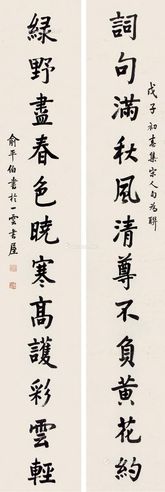 詞句滿秋風清尊不負黃花約
戊子初春集宋人句為聯
綠野盡春色曉寒高護彩雲輕
俞平伯書於一雲書屋